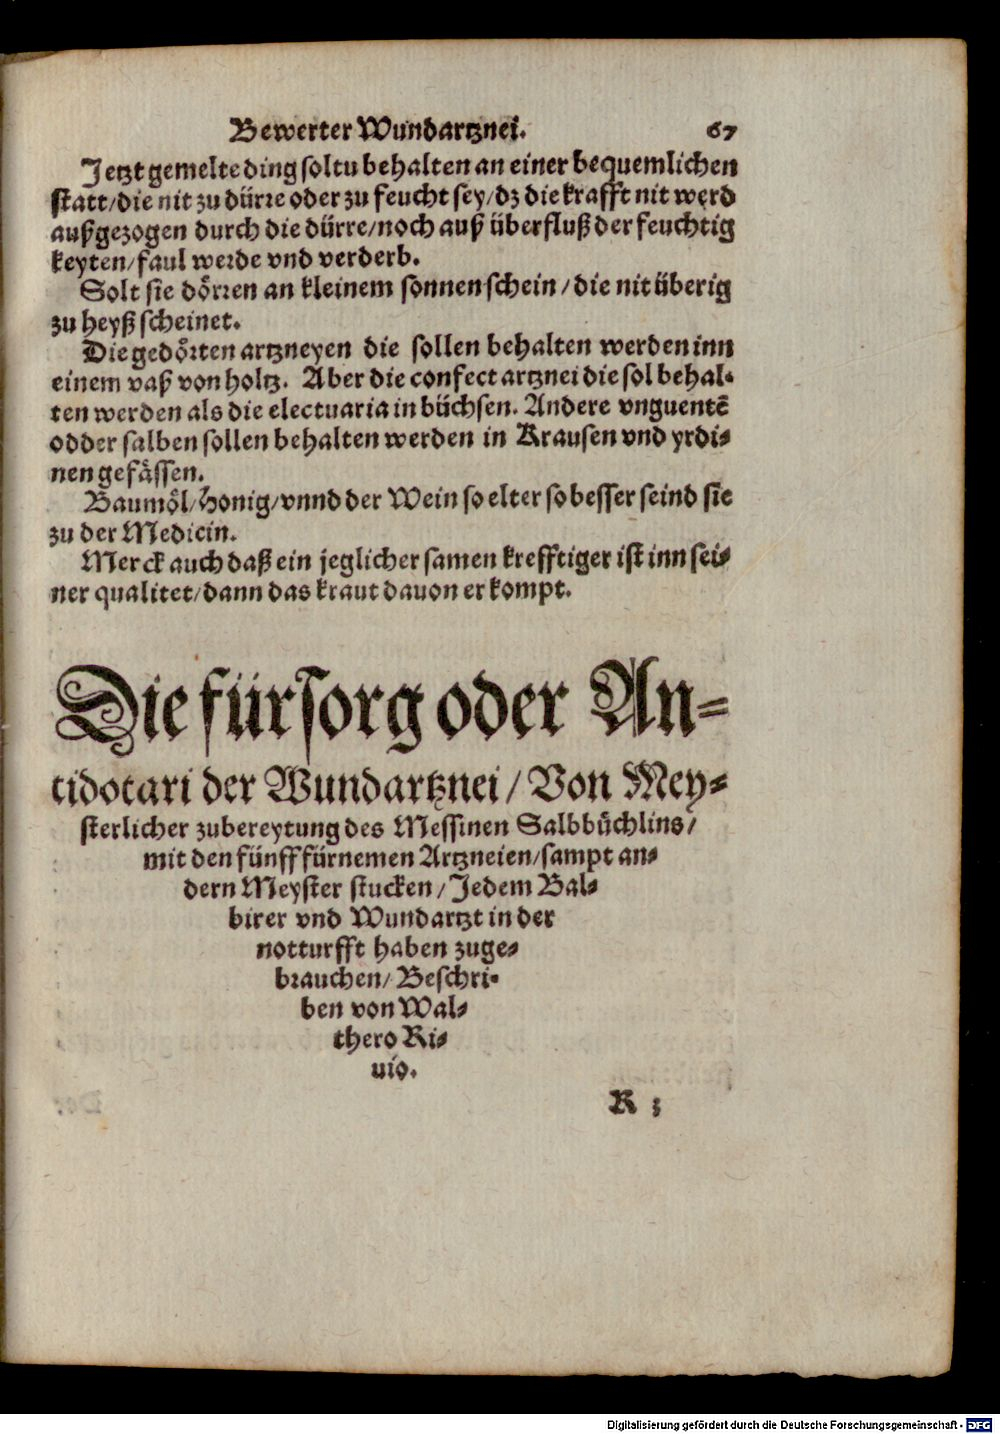 Bewerter Wundartznei. 67
Jetzt gemelte ding soltu behalten an einer bequemlichen
statt/die nit zu dürre oder zu feucht sey/dz die krafft nit werd
außgezogen durch die dürre/noch auß überfluß der feuchtig
keyten/faul werde vnd verderb.
Solt sie dörren an kleinem sonnenschein/die nit überig
zu heyß scheinet.
Die gedörten artzneyen die sollen behalten werden inn
einem vaß von holtz. Aber die confect artznei die sol behal-
ten werden als die electuaria in büchsen. Andere vnguentē
odder salben sollen behalten werden in Krausen vnd yrdi-
nen gefässen.
Baumöl/Honig/vnnd der Wein so elter so besser seind sie
zu der Medicin.
Merck auch daß ein jeglicher samen krefftiger ist inn sei-
ner qualitet/dann das kraut dauon er kompt.
Die fürsorg oder An-
tidotari der Wundartznei/Von Mey-
sterlicher zubereytung des Messinen Salbbüchlins/
mit den fünff fürnemen Artzneien/sampt an-
dern Meyster stucken/Jedem Bal-
birer vnd Wundartzt in der
notturfft haben zuge-
brauchen/Beschri-
ben von Wal-
thero Ri-
uio.
R 3
Digitalisierung gefördert durch die Deutsche Forschungsgemeinschaft - DFG